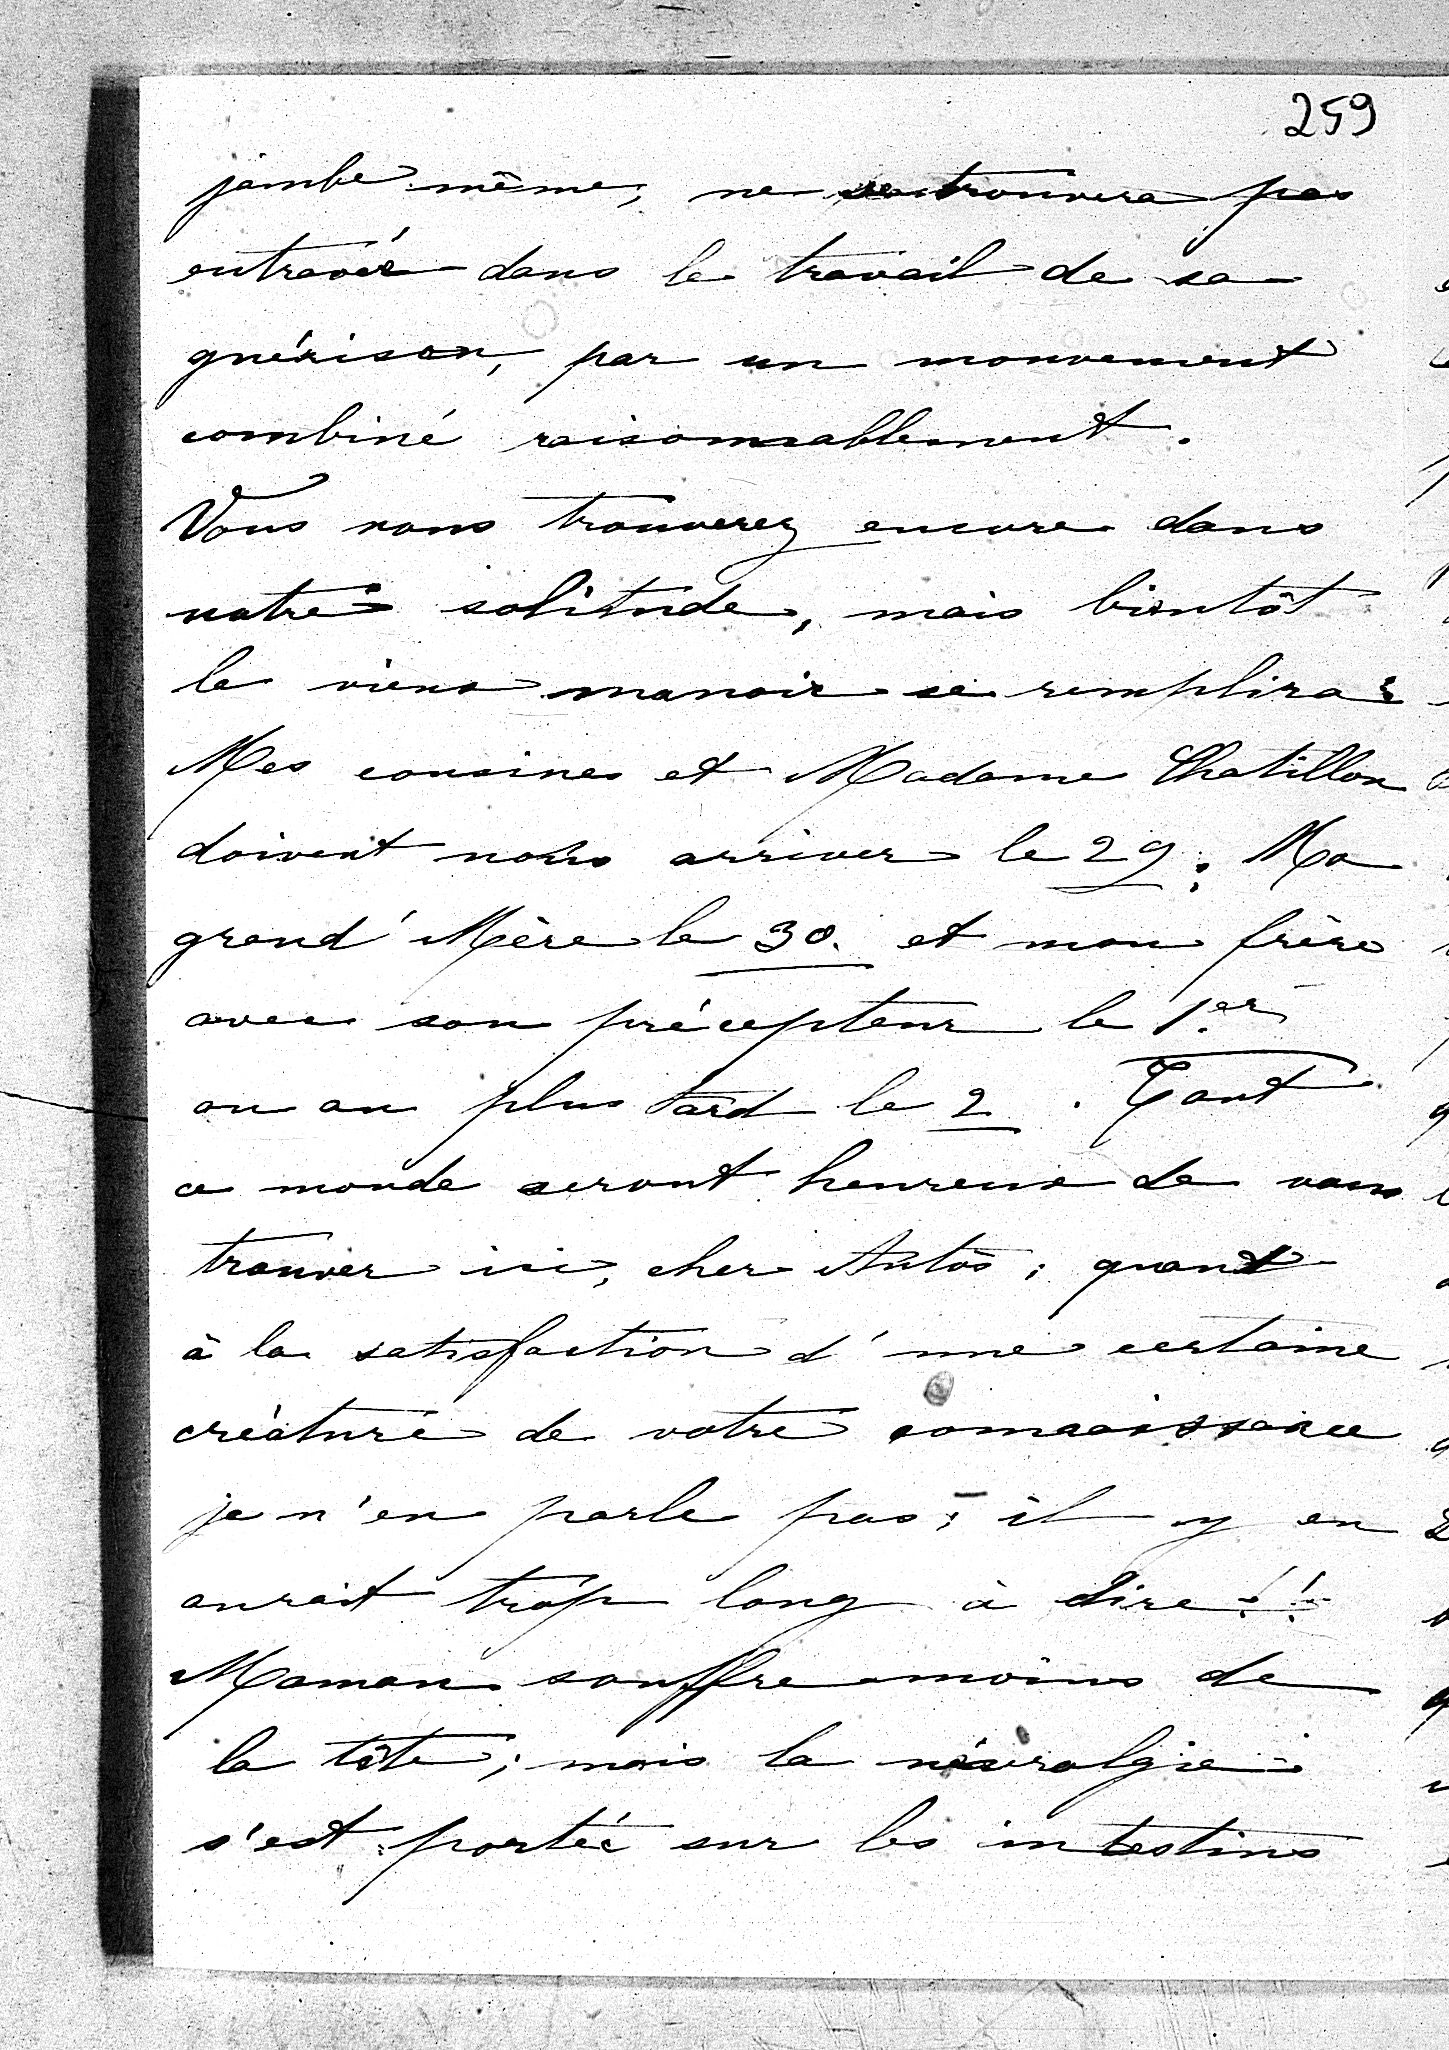 259
jambe même, ne se trouvera pas
entravée dans le travail de sa
guérison, par un mouvement
combiné raisonnablement.
Vous nous trouverez encore dans
notre solitude, mais bientôt
le vieux manoir se remplira :
Mes cousines et Madame Chatillon
doivent nous arriver le 29 ; Ma
grand'Mère le 30. et mon frère
avec son précepteur le 1er
ou au plus tard le 2 . Tout
ce monde seront heureux de vous
trouver ici, cher Antos ; quant
à la satisfaction d'une certaine
créature de votre connaissance
je n'en parle pas ; il y en
aurait trop long à dire !!
Maman souffre moins de
la tête ; mais la névralgie
s'est portée sur les intestins